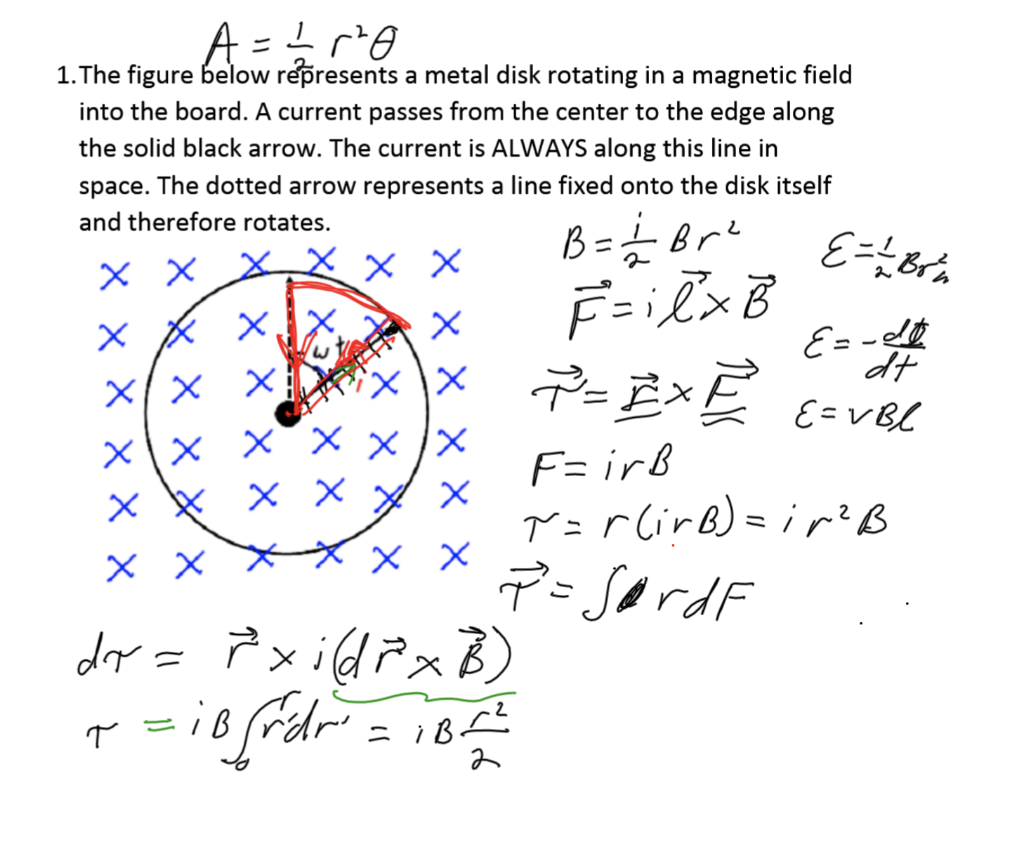 A = ½ r²θ
1. The figure below represents a metal disk rotating in a magnetic field
into the board. A current passes from the center to the edge along
the solid black arrow. The current is ALWAYS along this line in
space. The dotted arrow represents a line fixed onto the disk itself
and therefore rotates.
B = ½ Br²
F⃗ = i l⃗ × B⃗
τ⃗ = r⃗ × F⃗
F = irB
τ = r(irB) = ir²B
τ⃗ = ∫ r dF
ε = ½ Br²
ε = - dΦ/dt
ε = vBl
ωt
dτ = r⃗ × i(dr⃗ × B⃗)
τ = iB ∫₀ʳ r'dr' = iB r²/2